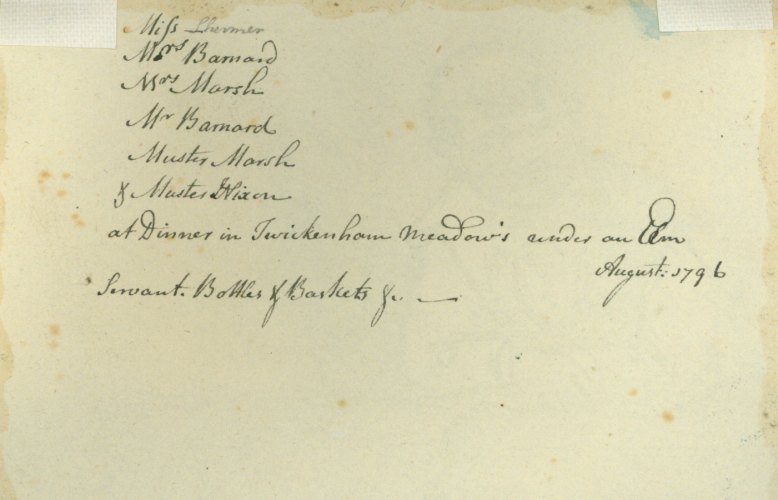 Miss Shermer
Mrs Barnard
Mrs Marsh
Mr Barnard
Master Marsh
& Master Nixon
at Dinner in Twickenham Meadow's under an Elm
August. 1796
Servant. Bottles & Baskets &c. —